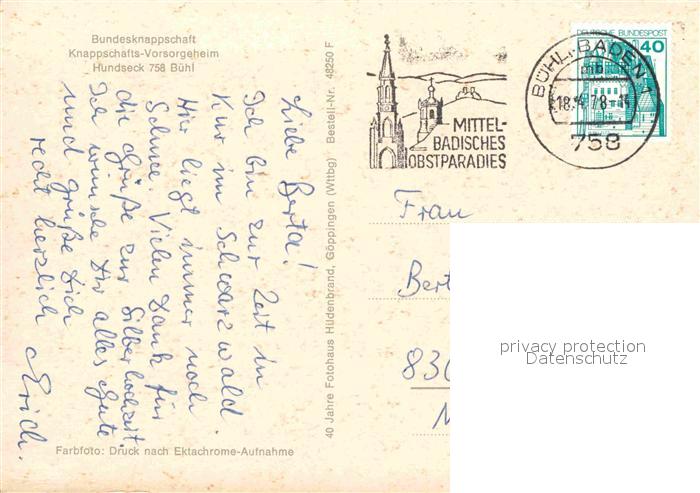 Bundesknappschaft
Knappschafts-Vorsorgeheim
Hundseck 758 Bühl
Liebe Berta!
Ich bin zur Zeit in
Kur im Schwarzwald.
Hier liegt immer noch
Schnee. Vielen Dank für
die Grüße zur Silberhochzeit.
Ich wünsche Dir alles Gute
und grüße Dich
recht herzlich
Erich.
Farbfoto: Druck nach Ektachrome-Aufnahme
40 Jahre Fotohaus Hüdenbrand, Göppingen (Wttbg) Bestell-Nr. 48250 F
MITTEL-
BADISCHES
OBSTPARADIES
BÜHL, BADEN 1
mb
18.4.78-14
758
DEUTSCHE BUNDESPOST
40
Frau
Bert
830
M
privacy protection
Datenschutz